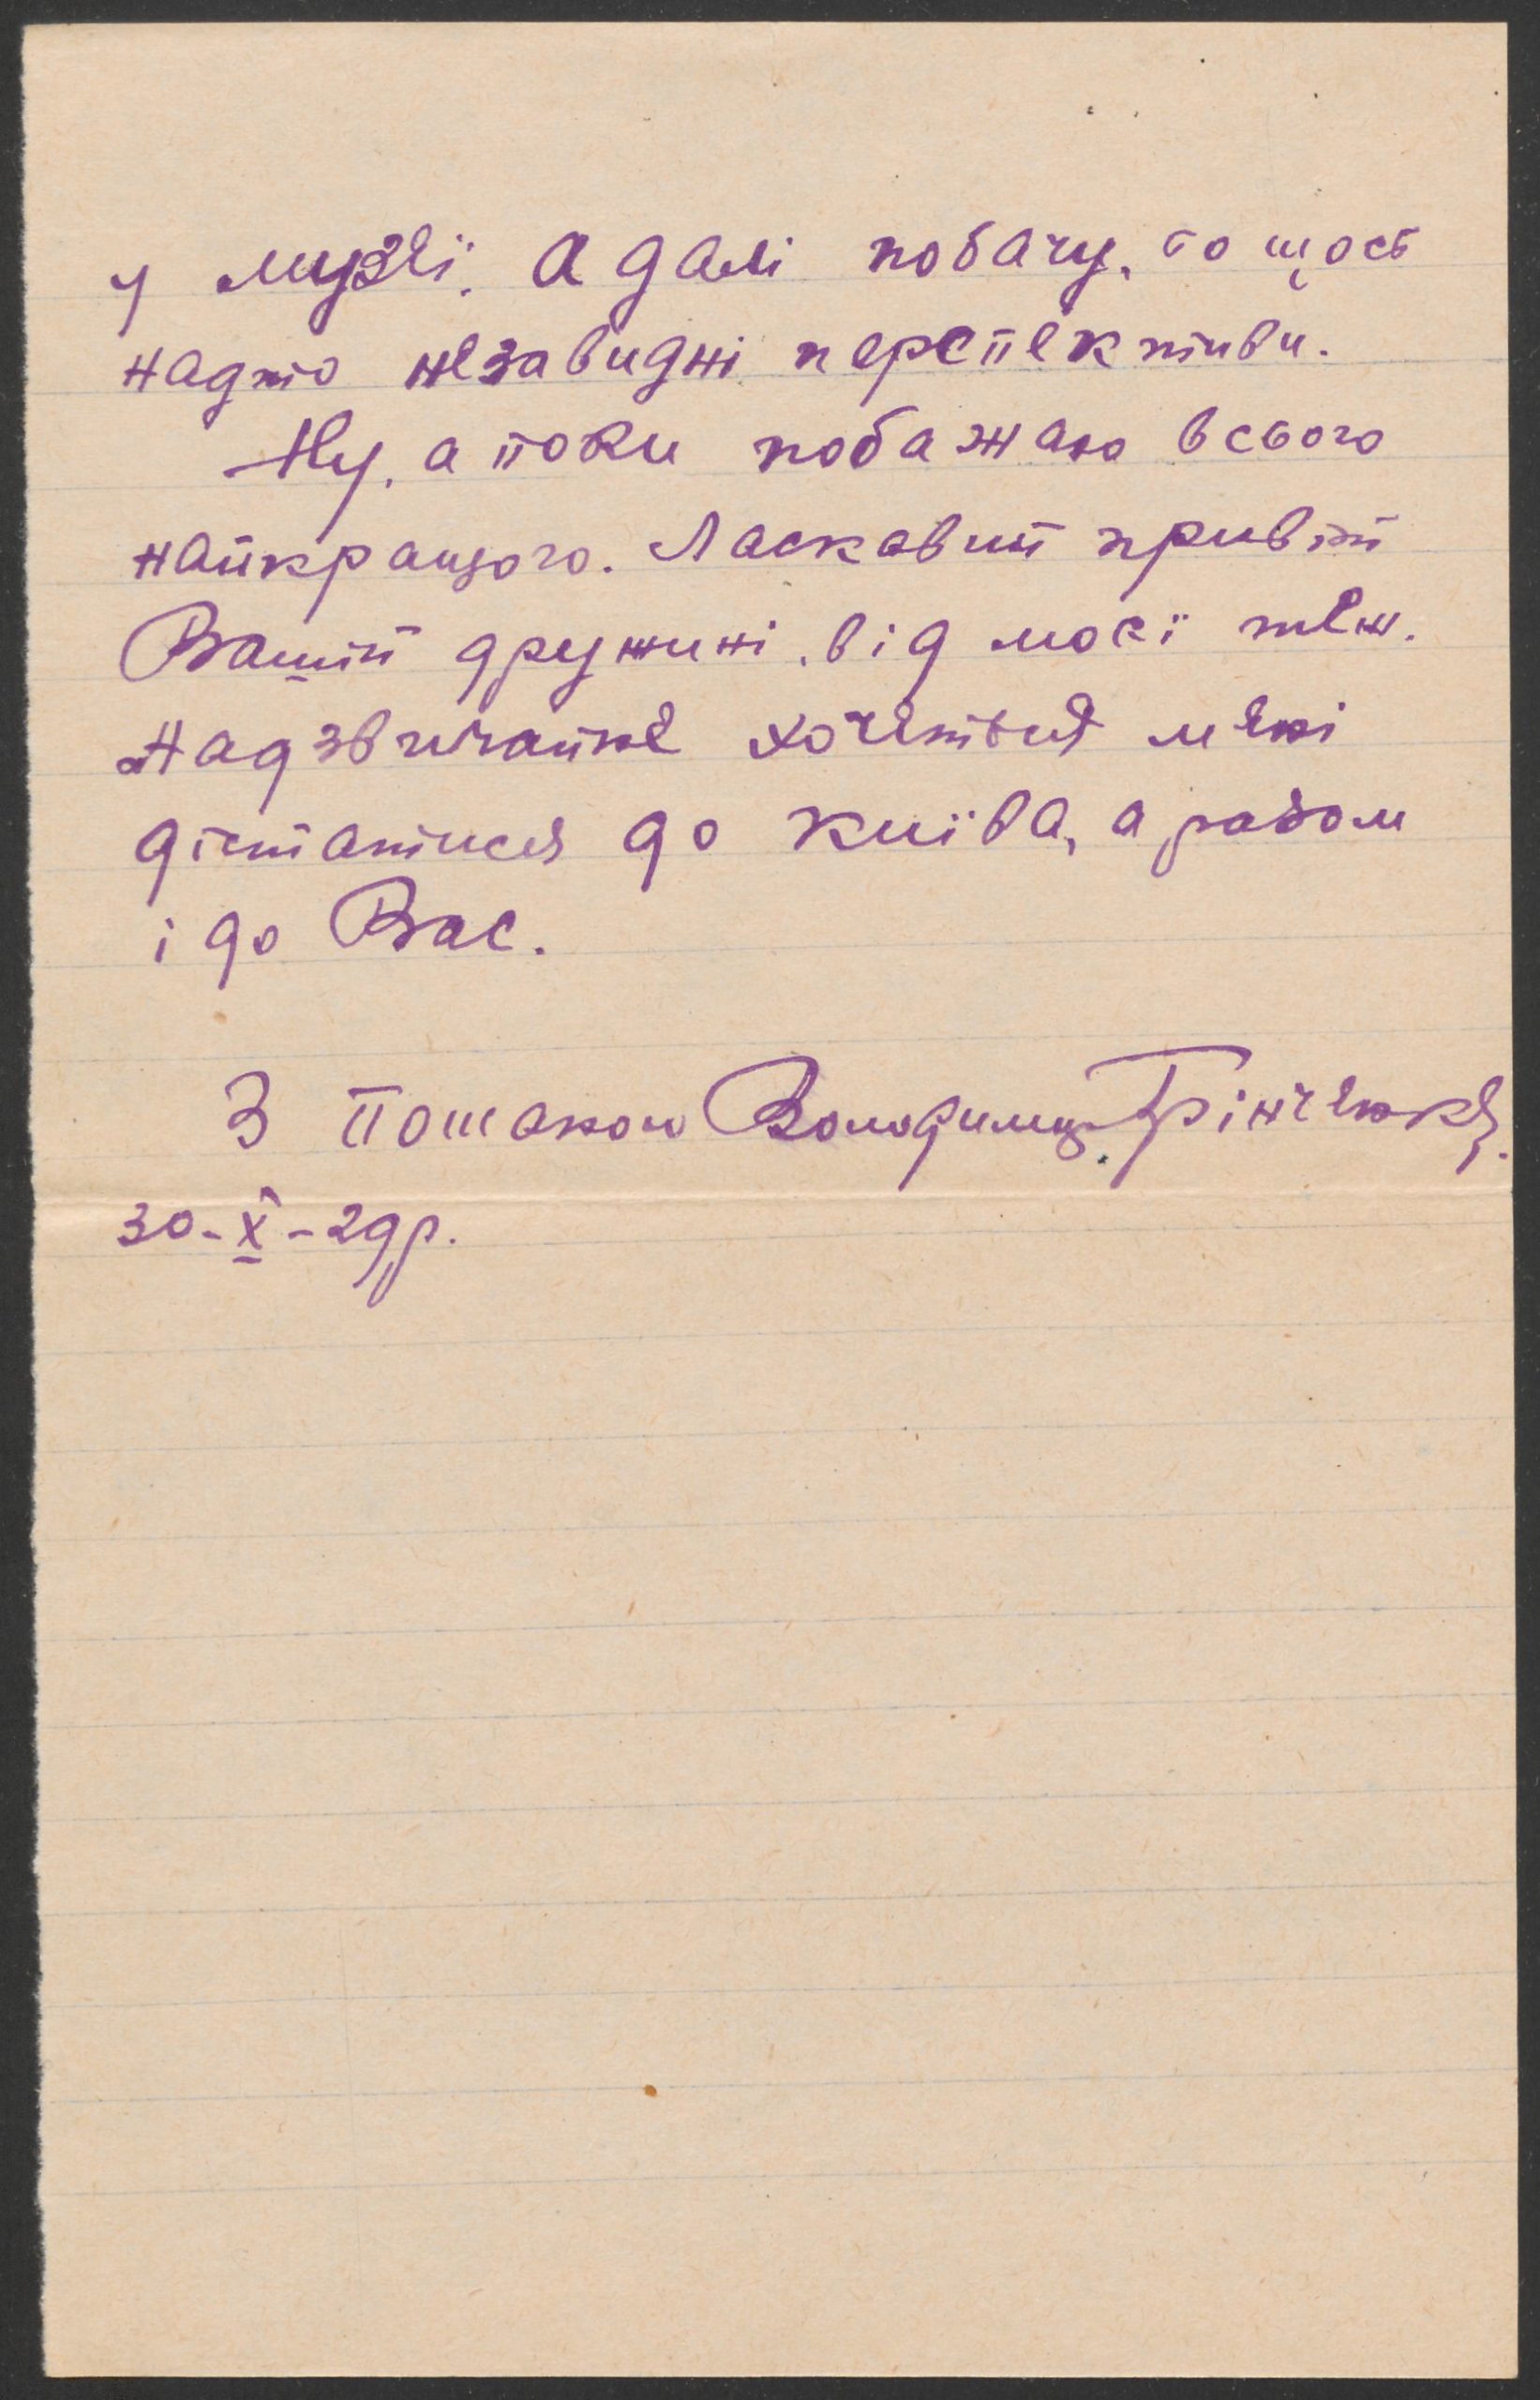 у музеї. А далі побачу, бо щось
надто незавидні перспективи.
Ну, а поки побажаю всього
найкращого. Ласкавий привіт
Вашій дружині, від моєї теж.
Надзвичайно хочеться мені
дістатися до Київа, а разом
і до Вас.
З пошаною Володимир Грінченко.
30-X-29р.